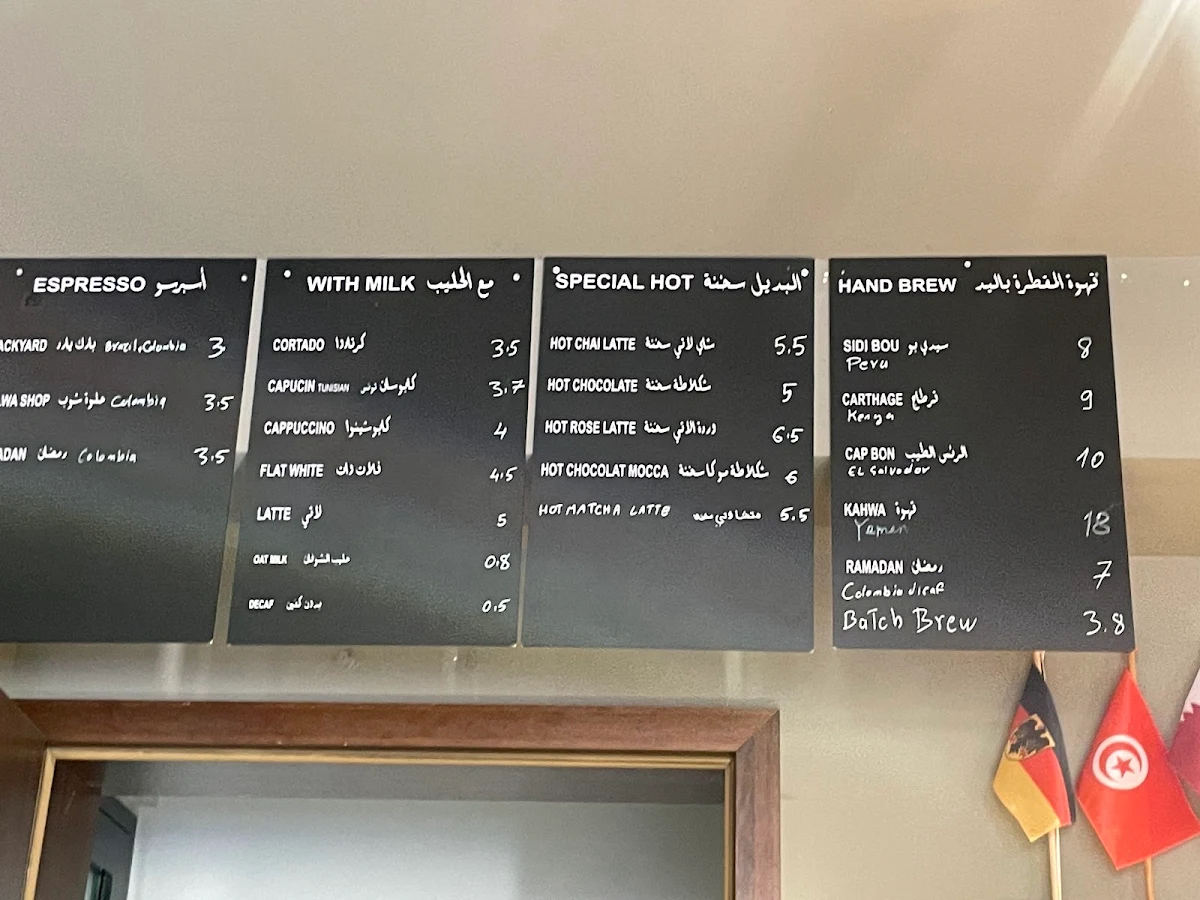 ESPRESSO أسبرسو
ACKYARD باك يارد Brazil, Colombia 3
WA SHOP حلوة شوب Colombia 3.5
ADAN رمضان Colombia 3.5
WITH MILK مع الحليب
CORTADO كرتادوا 3.5
CAPUCIN TUNISIAN كابوسان تونسي 3.7
CAPPUCCINO كابوشينوا 4
FLAT WHITE فلات وات 4.5
LATTE لاتي 5
OAT MILK حليب الشوفان 0.8
DECAF بدون كفين 0.5
SPECIAL HOT البديل سخنة
HOT CHAI LATTE شاي لاتي سخنة 5.5
HOT CHOCOLATE شكلاطة سخنة 5
HOT ROSE LATTE وردة لاتي سخنة 6.5
HOT CHOCOLAT MOCCA شكلاطة موكا سخنة 6
HOT MATCHA LATTE 5.5
HAND BREW قهوة القطرة باليد
SIDI BOU سيدي بو 8
Peru
CARTHAGE قرطاج 9
Kenya
CAP BON الرئس الطيب 10
EL Salvador
KAHWA قهوة 18
Yemen
RAMADAN رمضان 7
Colombia
Batch Brew 3.8